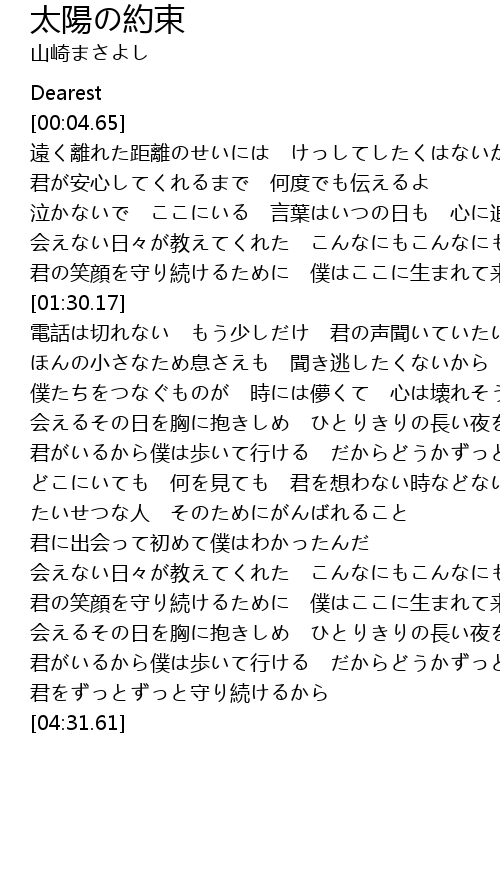 太陽の約束
山崎まさよし
Dearest
[00:04.65]
遠く離れた距離のせいには　けっしてしたくはないか
君が安心してくれるまで　何度でも伝えるよ
泣かないで　ここにいる　言葉はいつの日も　心に追
会えない日々が教えてくれた　こんなにもこんなにも
君の笑顔を守り続けるために　僕はここに生まれて来
[01:30.17]
電話は切れない　もう少しだけ　君の声聞いていたい
ほんの小さなため息さえも　聞き逃したくないから
僕たちをつなぐものが　時には儚くて　心は壊れそう
会えるその日を胸に抱きしめ　ひとりきりの長い夜を
君がいるから僕は歩いて行ける　だからどうかずっと
どこにいても　何を見ても　君を想わない時などない
たいせつな人　そのためにがんばれること
君に出会って初めて僕はわかったんだ
会えない日々が教えてくれた　こんなにもこんなにも
君の笑顔を守り続けるために　僕はここに生まれて来
会えるその日を胸に抱きしめ　ひとりきりの長い夜を
君がいるから僕は歩いて行ける　だからどうかずっと
君をずっとずっと守り続けるから
[04:31.61]